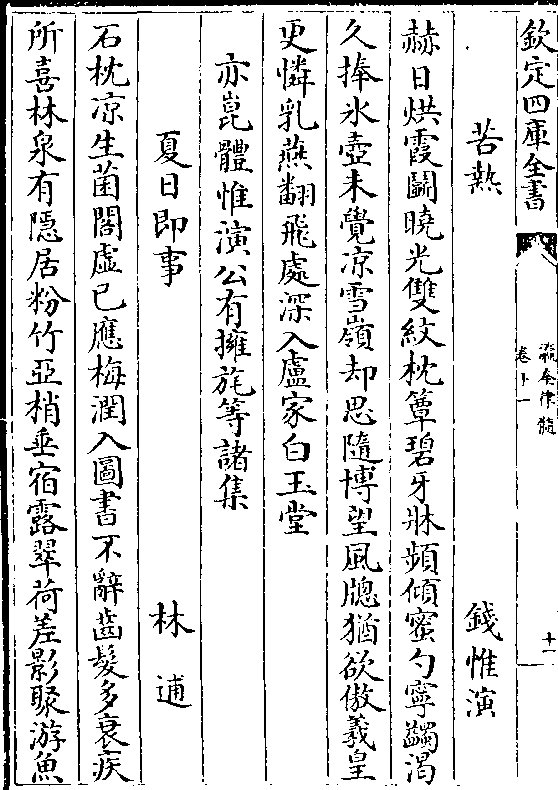 欽定四庫全書
瀛奎律髓
卷十一
十一
苦熱 錢惟演
赫日烘霞鬭曉光雙紋枕簟碧牙牀頻傾蜜勺寧蠲渴
久捧氷壺未覺凉雪嶺却思隨博望風牕猶欲傲羲皇
更憐乳燕翻飛處深入盧家白玉堂
亦崑體惟演公有擁旄等諸集
夏日即事 林逋
石枕凉生菌閣虚已應梅潤入圖書不辭齒髮多衰疾
所喜林泉有隱居粉竹亞梢垂宿露翠荷差影聚游魚